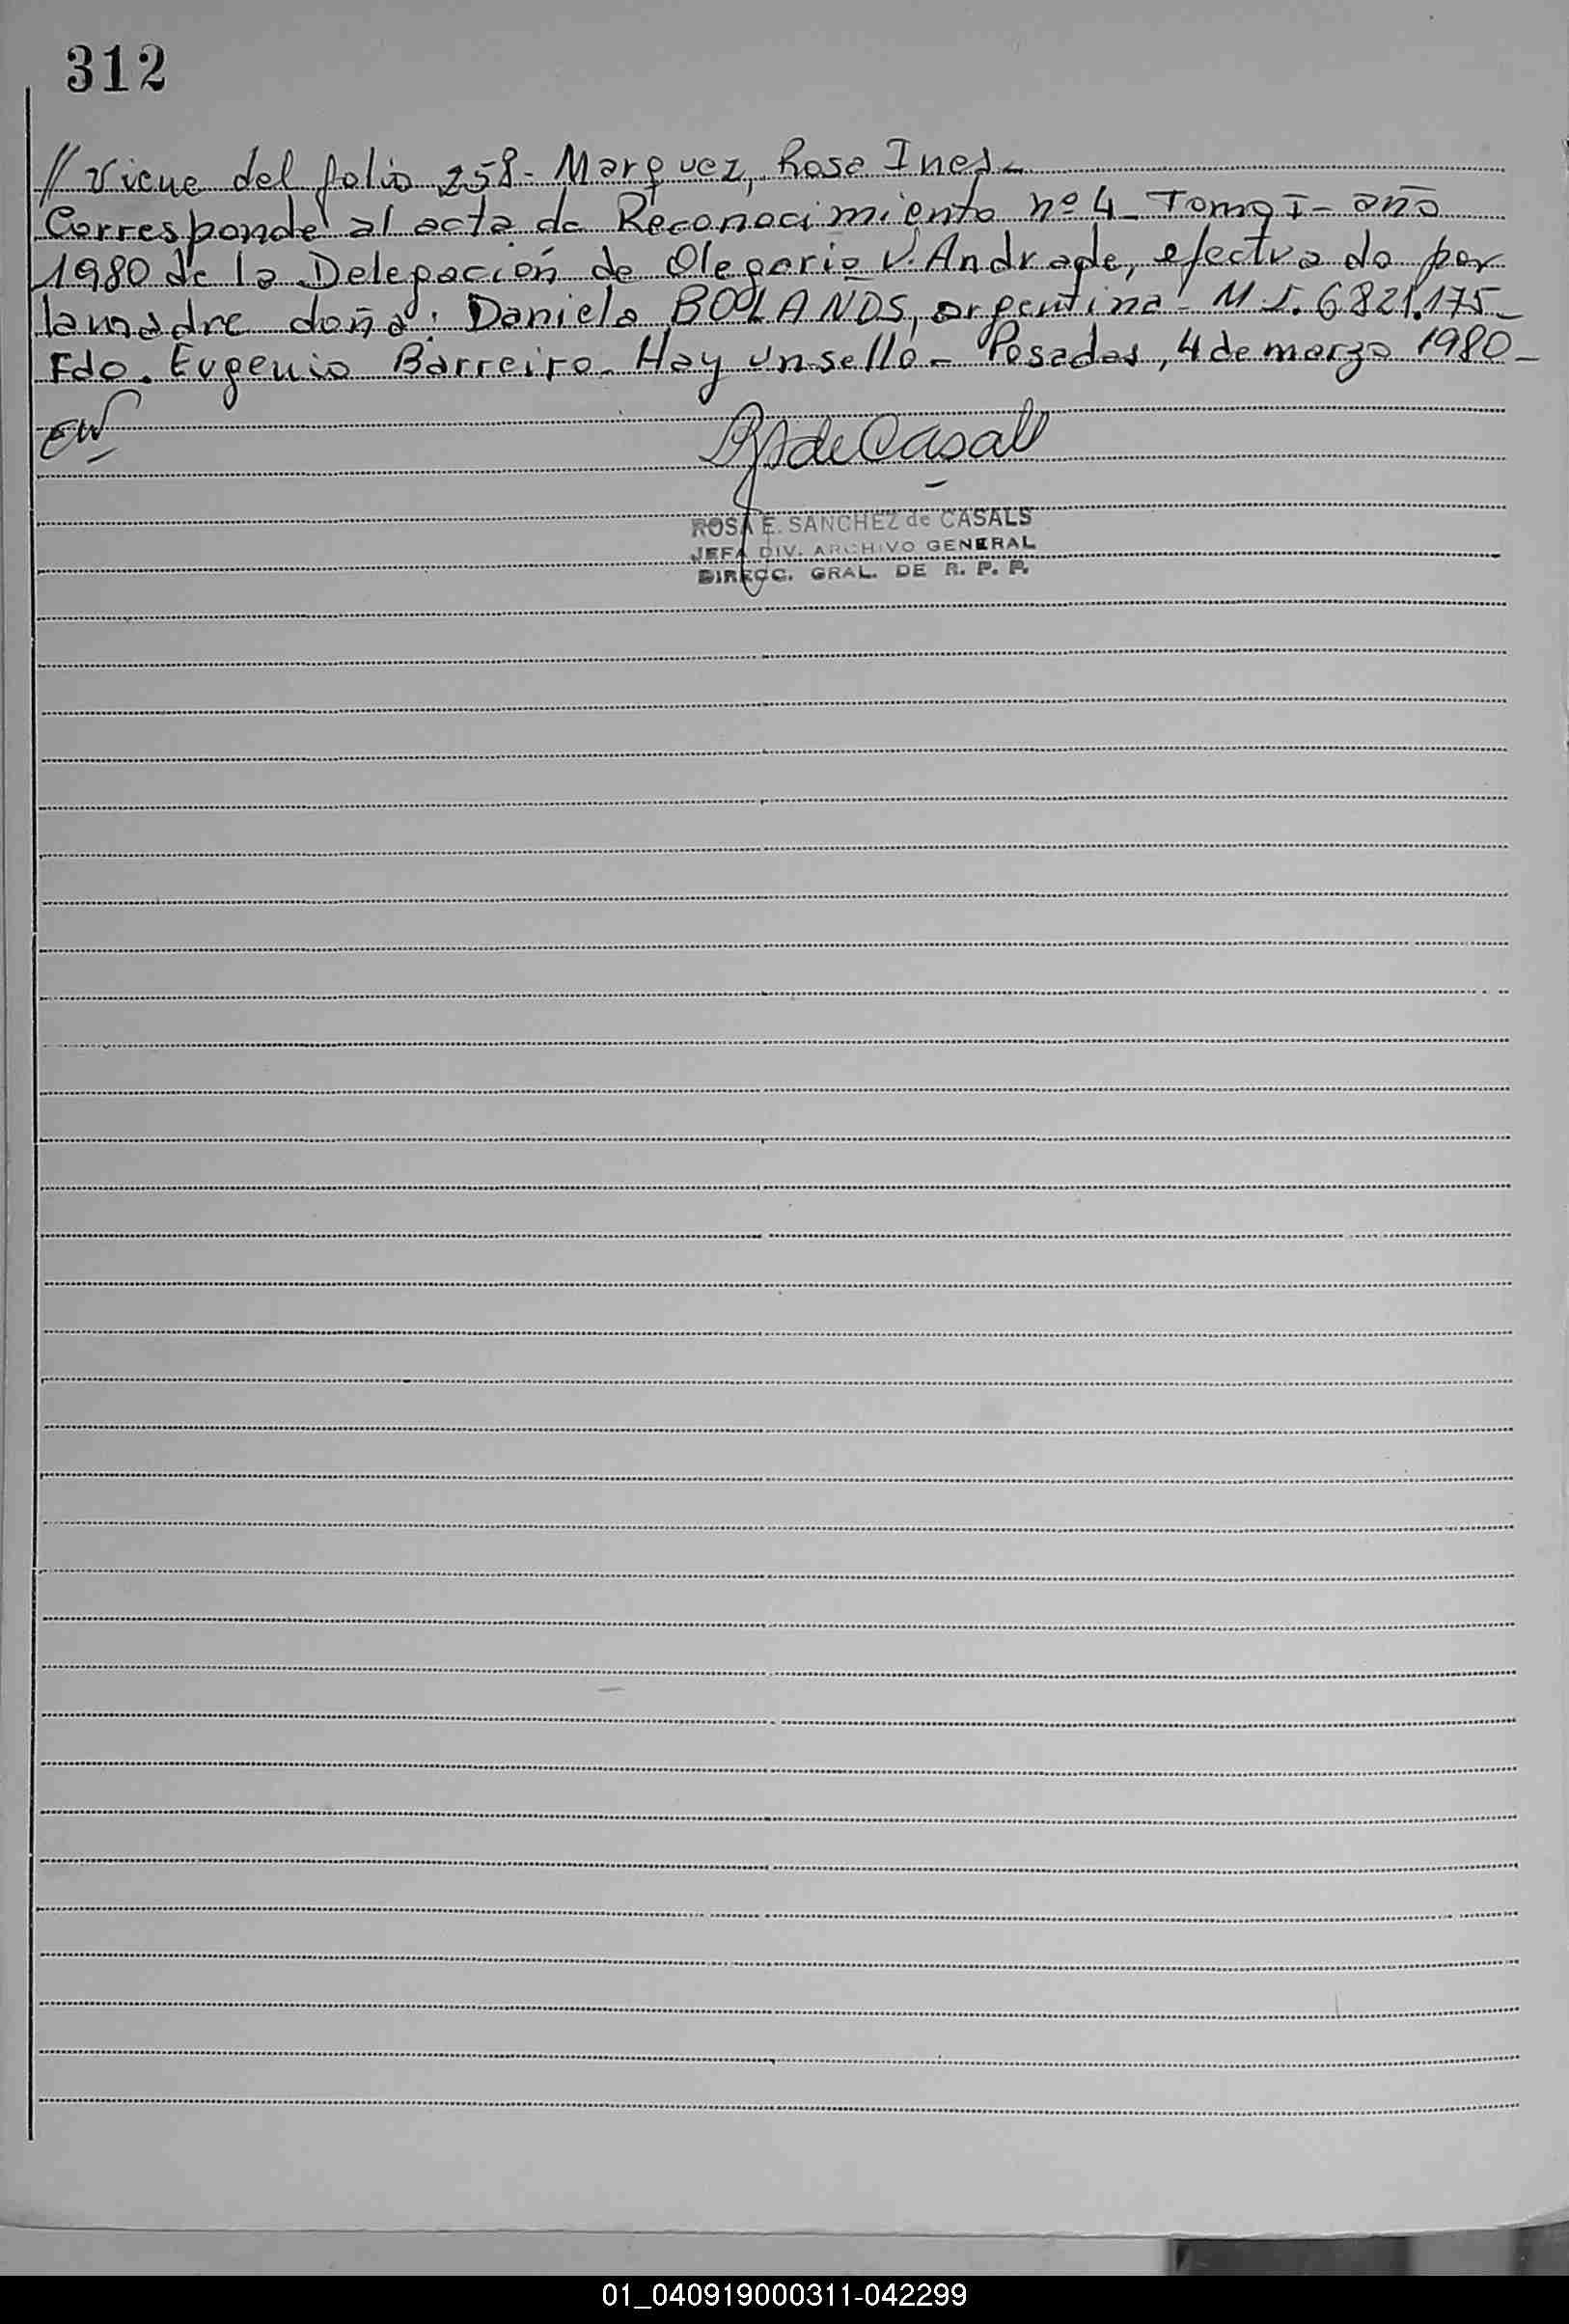 312
// Viene del folio 258- Marquez, Rosa Ines-
Corresponde al acta de Reconocimiento nº 4- Tomo I- año
1980 de la Delegación de Olegario V. Andrade, efectuado por
la madre doña: Daniela BOLANOS, argentina- M.I. 6.821.175-
Fdo. Eugenio Barreiro- Hay un sello- Posadas, 4 de marzo 1980-
EW
de Casals
ROSA E. SANCHEZ de CASALS
JEFA DIV. ARCHIVO GENERAL
DIRECC. GRAL. DE R. P. P.
01_040919000311-042299